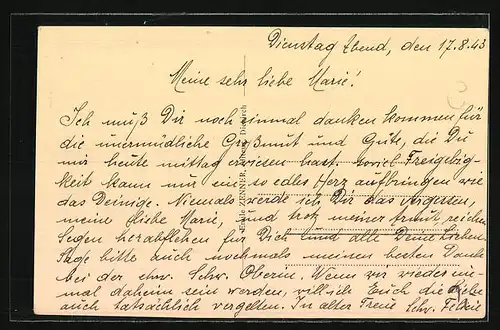 Dienstag Abend, den 17.8.43
Meine sehr liebe Marie!
Ich muß Dir noch einmal danken kommen für
die unermüdliche Großmut und Güte, die Du
mir heute mittag erwiesen hast. Soviel Freigebig-
keit kann nur ein so edles Herz aufbringen wie
das Deinige. Niemals werde ich Dir das vergessen,
meine liebe Marie, und trotz meiner Armut, reichen
Segen herabflehen für Dich und alle Deine Lieben.
Sage bitte auch nochmals meinen besten Dank
bei der ehrw. Schw. Oberin. Wenn wir wieder ein-
mal daheim sein werden, will ich Euch die Liebe
auch tatsächlich vergelten. In alter Treue Schw.
ZENNER